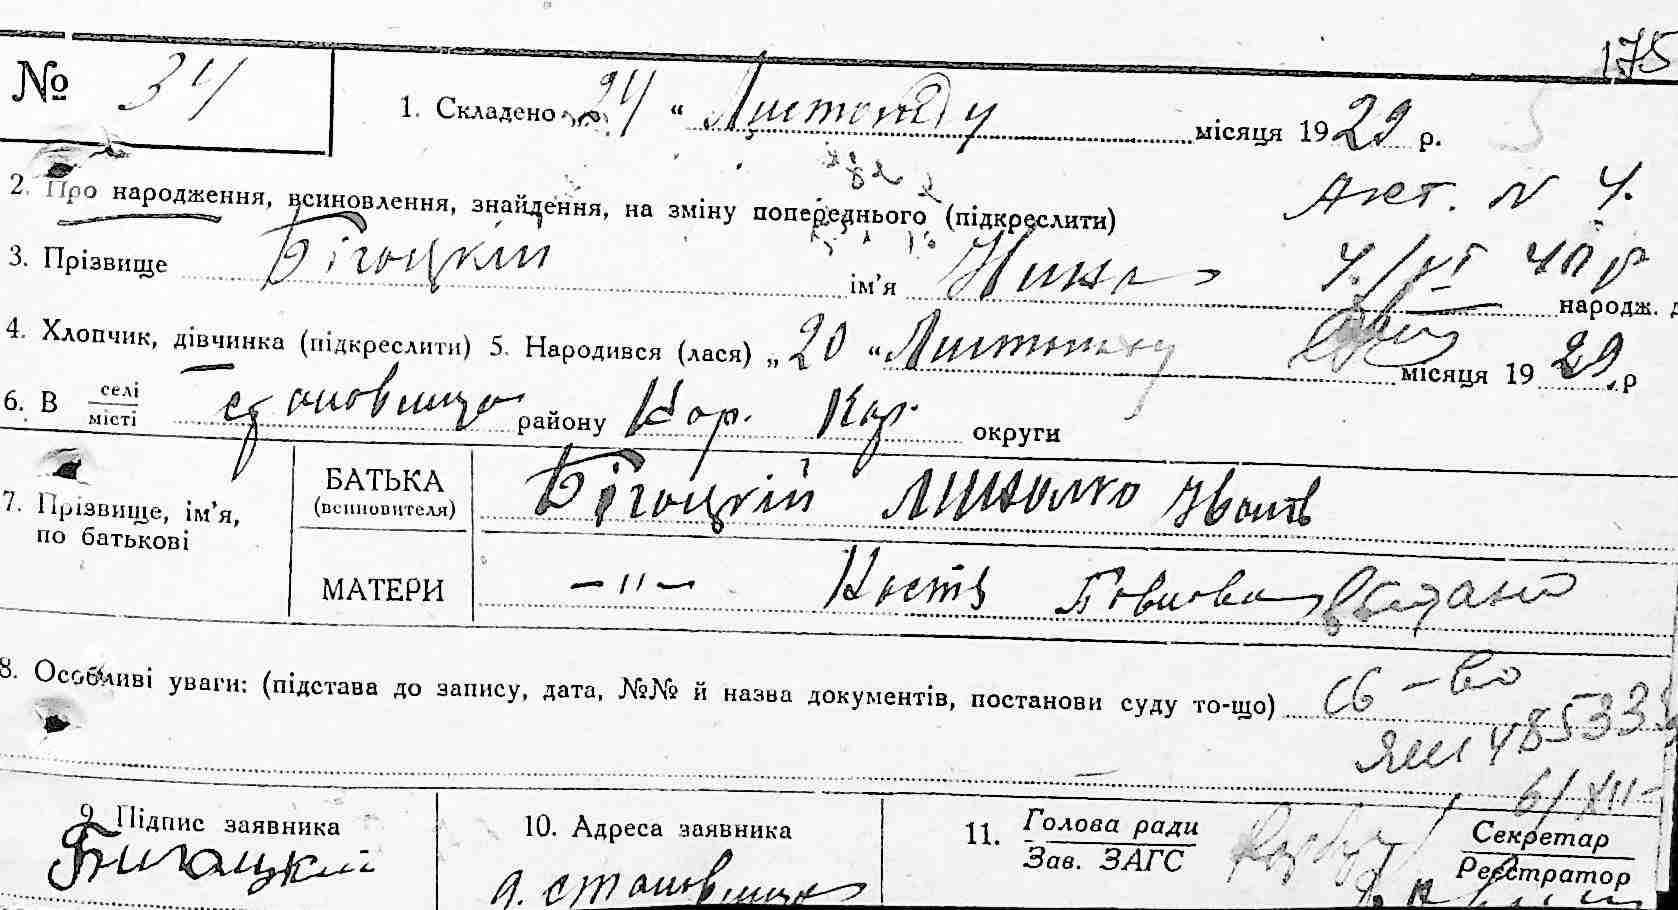 175
№ 34
1. Складено 24 " Листопаду місяця 1929 р.
Акт. N 4.
2. Про народження, всиновлення, знайдення, на зміну попереднього (підкреслити)
3. Прізвище Бігоцкій ім'я Нина народж. д
4. Хлопчик, дівчинка (підкреслити) 5. Народився (лася) „ 20 " Листопаду місяця 1929 р
6. В селі/місті Становище району Кор. Кор. округи
7. Прізвище, ім'я, по батькові
БАТЬКА (всиновителя) Бігоцкій Миколко Іванів
МАТЕРИ — " — Настя видано
8. Особливі уваги: (підстава до запису, дата, №№ й назва документів, постанови суду то-що) св-во
485333
6/XII-
9. Підпис заявника
Бигоцкій
10. Адреса заявника
с. Становище
11. Голова ради
Зав. ЗАГС
Секретар
Реєстратор